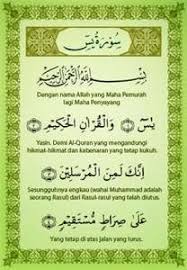 سُورَةُ يٰسٓ
بِسْمِ اللَّهِ الرَّحْمَٰنِ الرَّحِيمِ
Dengan nama Allah yang Maha Pemurah
lagi Maha Penyayang
يٰسٓ ۝ وَالْقُرْآنِ الْحَكِيمِ ۝
Yasin. Demi Al-Quran yang mengandungi
hikmat-hikmat dan kebenaran yang tetap kukuh.
إِنَّكَ لَمِنَ الْمُرْسَلِينَ ۝
Sesungguhnya engkau (wahai Muhammad adalah
seorang Rasul) dari Rasul-rasul yang telah diutus.
عَلَىٰ صِرَاطٍ مُّسْتَقِيمٍ ۝
Yang tetap di atas jalan yang lurus.